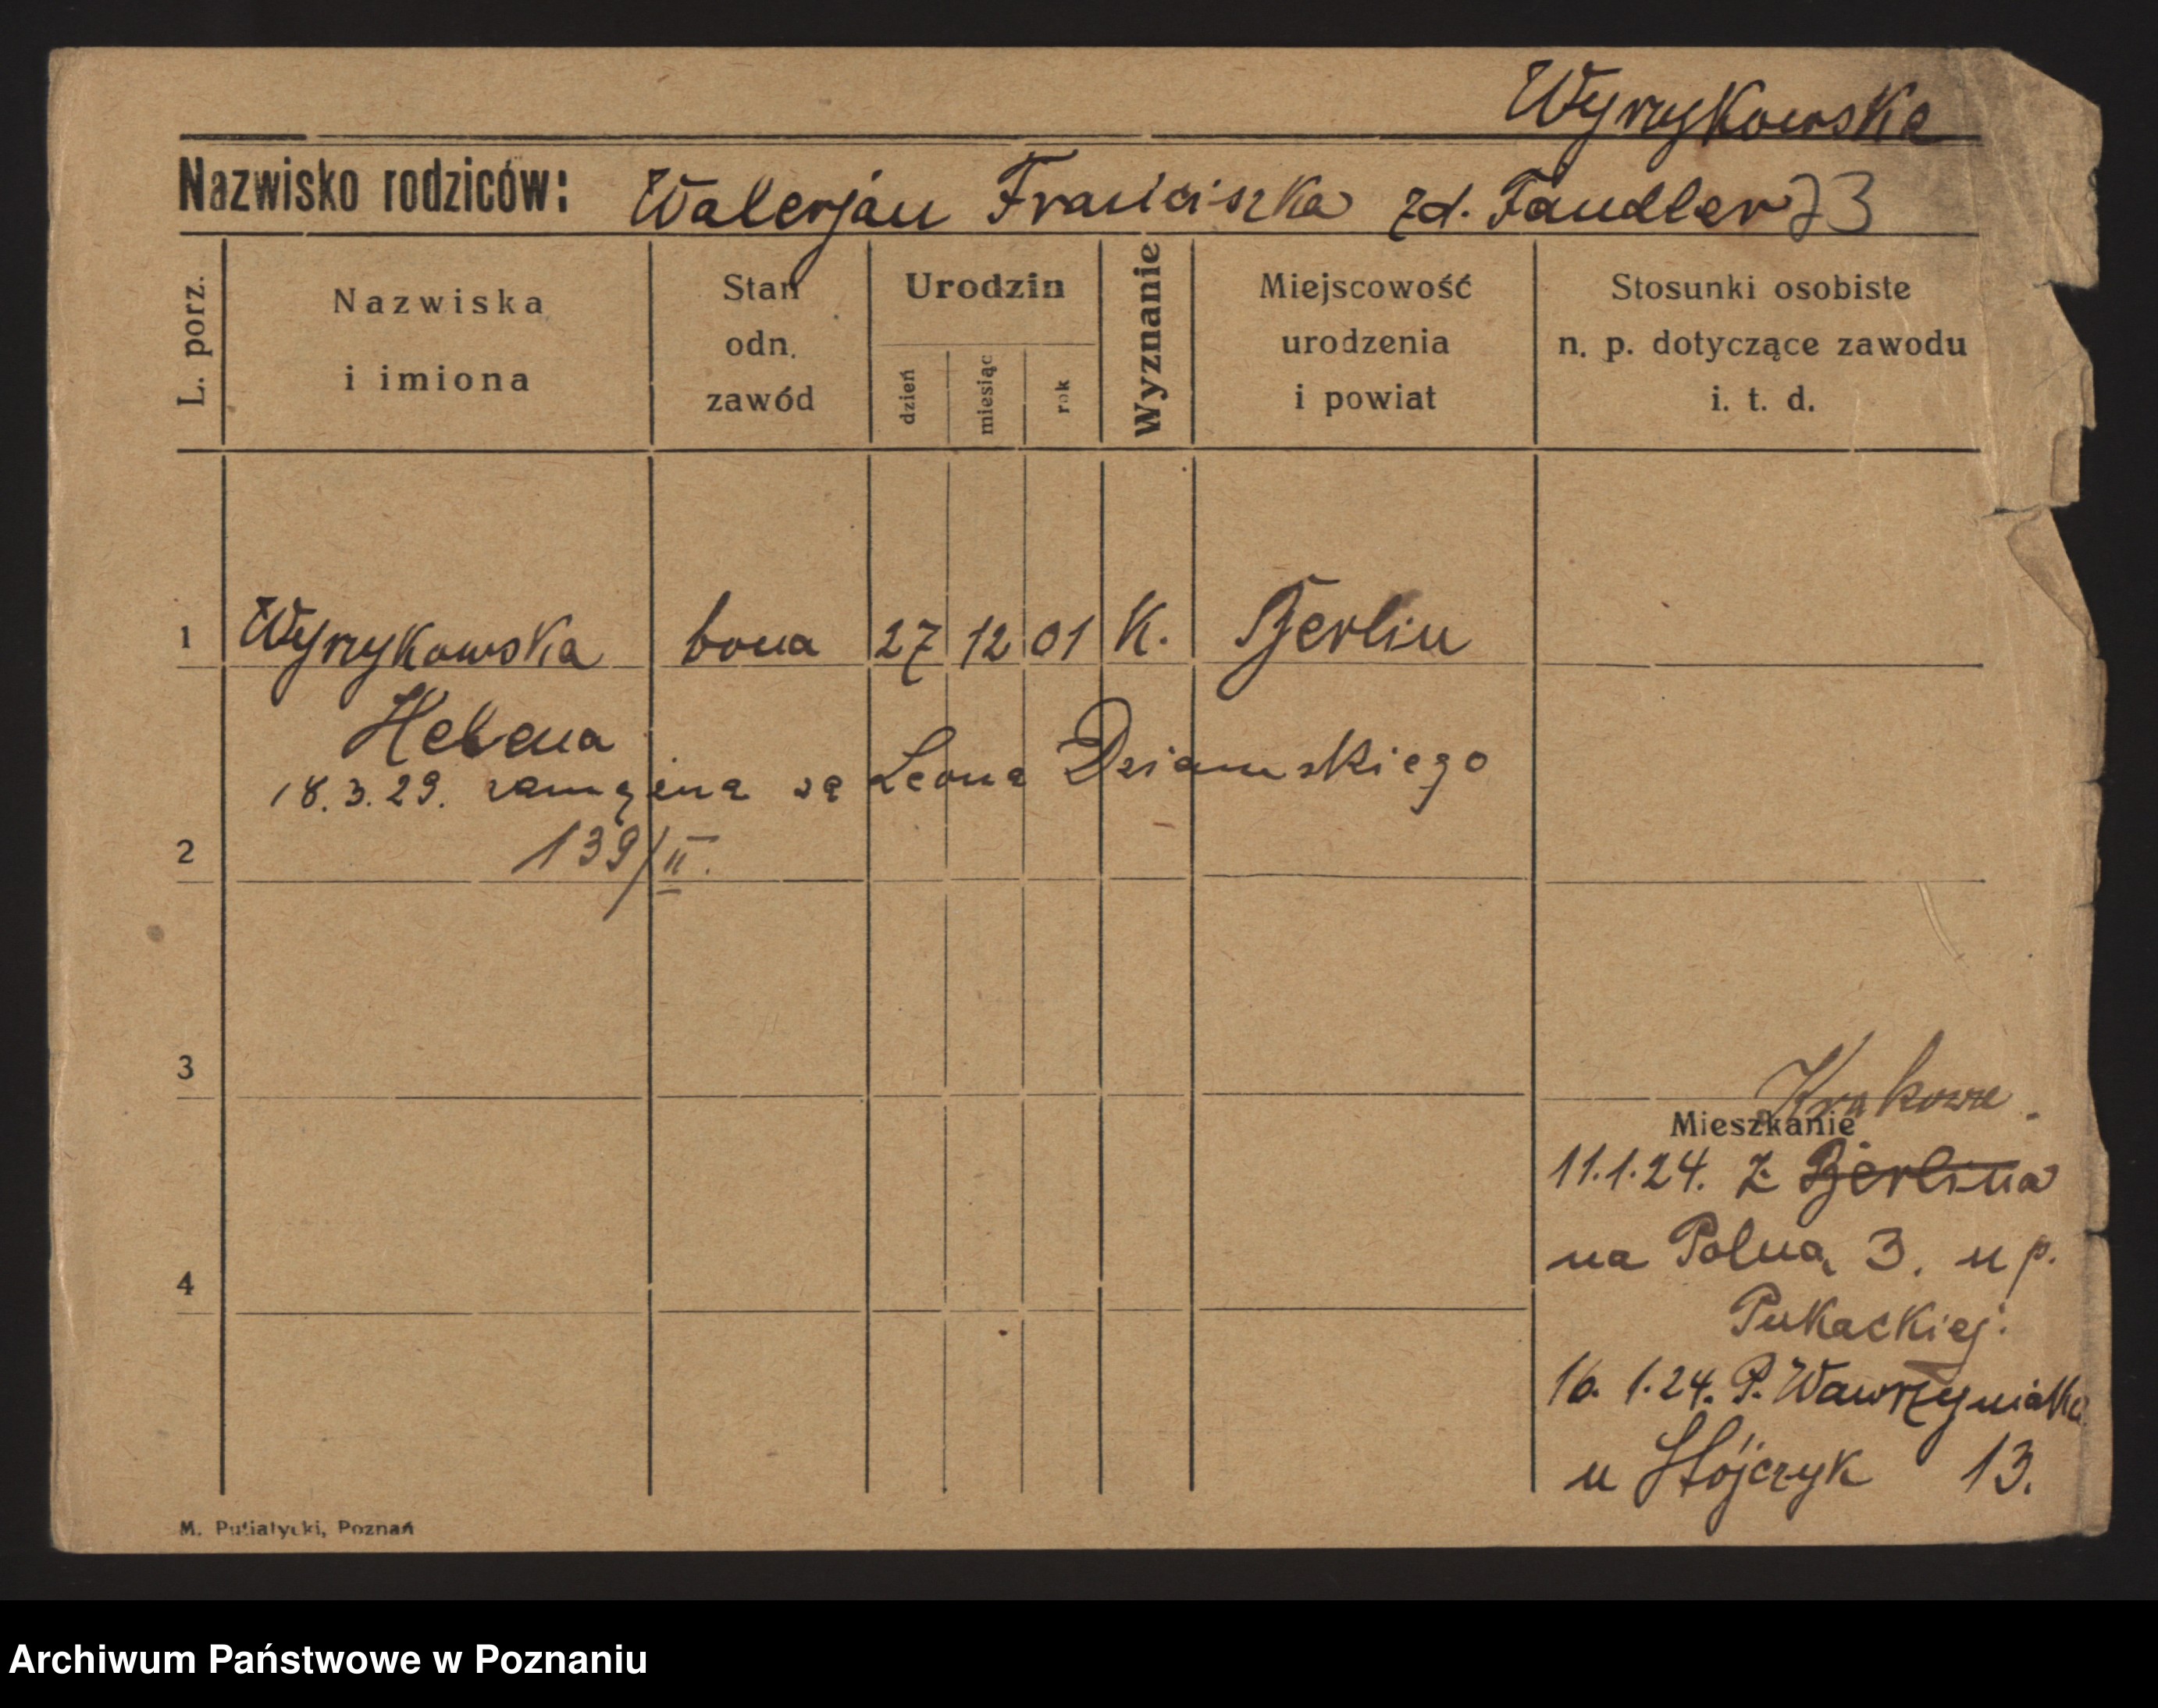 Wyrzykowska
Nazwisko rodziców: Walerjan Franciszka zd. Fandler 73
L. porz.
Nazwiska
i imiona
Stan
odn.
zawód
Urodzin
dzień
miesiąc
rok
Wyznanie
Miejscowość
urodzenia
i powiat
Stosunki osobiste
n. p. dotyczące zawodu
i. t. d.
1 Wyrzykowska bona 27 12 01 K. Berlin
Helena
18.3.29. zamężna za Leona Dziamskiego
2 139/II.
3
Krakowa
Mieszkanie
11.1.24. z Berlina
na Polną 3. u p.
4
Pukackiej.
16. 1.24. P. Wawrzyniaka
u Stójczyk 13.
M. Putiatycki, Poznań
Archiwum Państwowe w Poznaniu